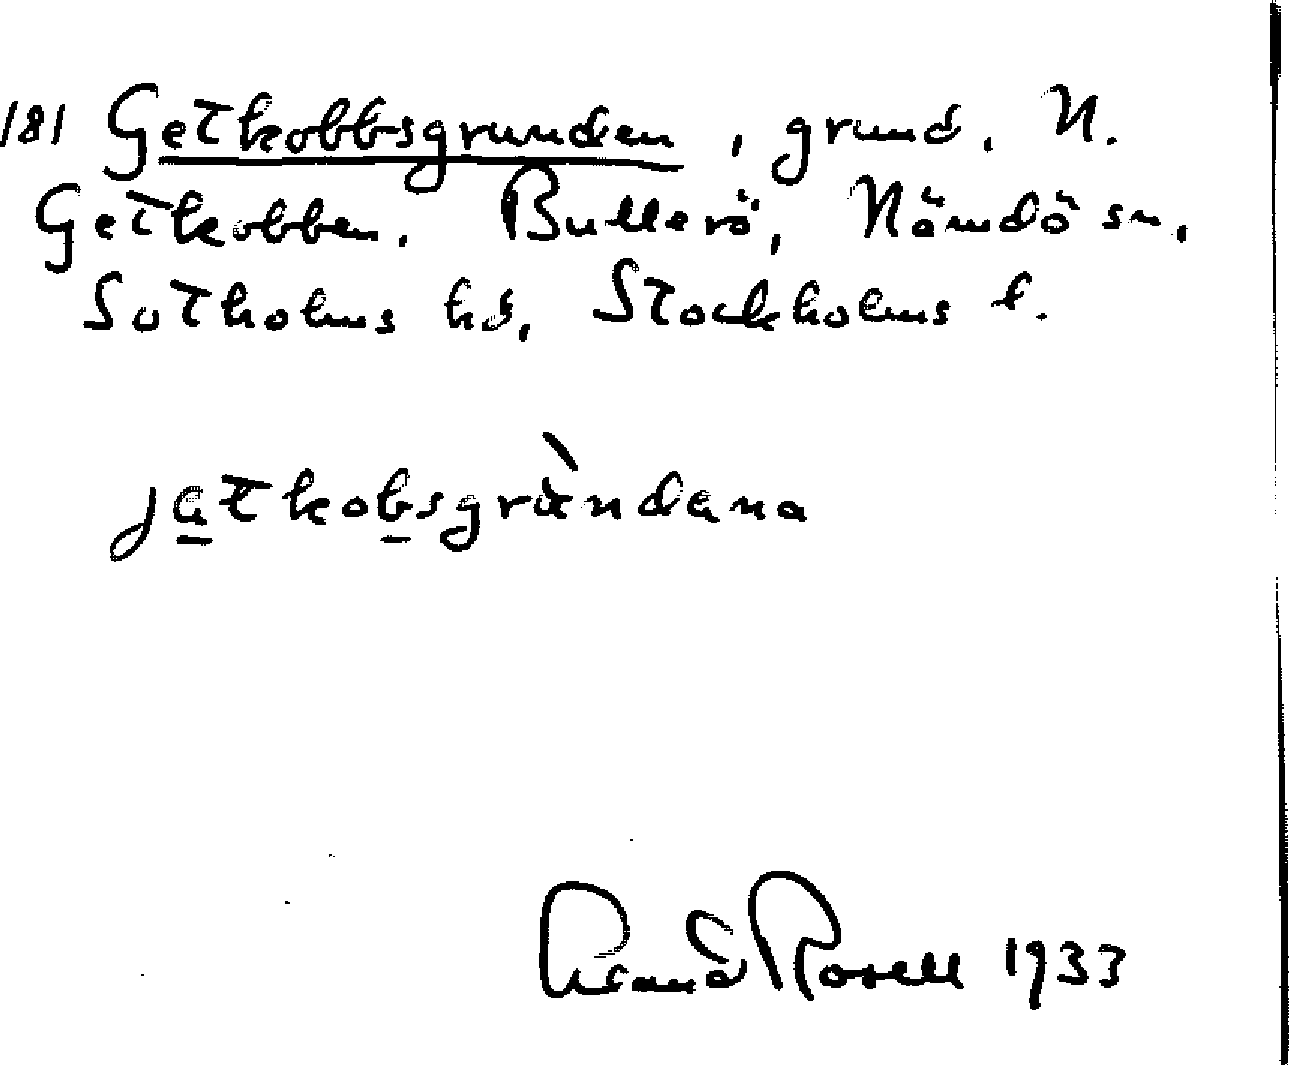 181 Getkobbsgrunden, grund. N.
Getkobben. Bullerö, Nämdö sn,
Sotholms hd, Stockholms l.
jatkobsgrùndana
Rosell 1933